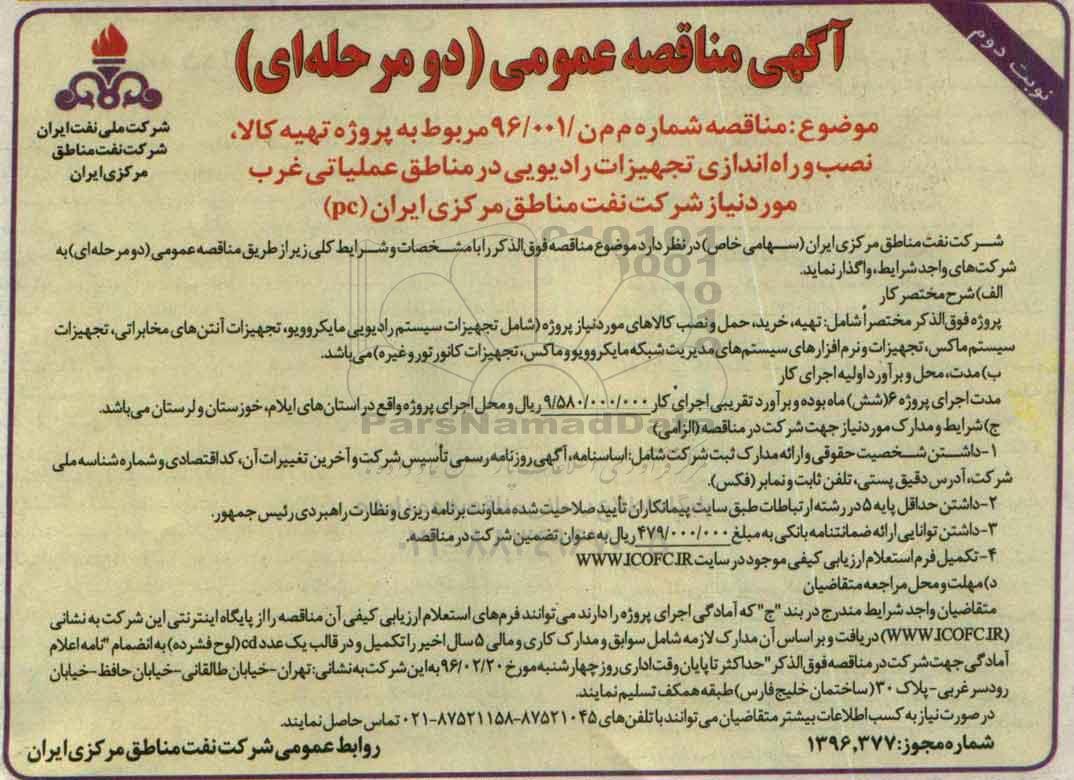 نوبت دوم
آگهی مناقصه عمومی (دو مرحله‌ای)
شرکت ملی نفت ایران
شرکت نفت مناطق
مرکزی ایران
موضوع: مناقصه شماره م م ن /۹۶/۰۰۱ مربوط به پروژه تهیه کالا،
نصب و راه‌اندازی تجهیزات رادیویی در مناطق عملیاتی غرب
مورد نیاز شرکت نفت مناطق مرکزی ایران (pc)
شرکت نفت مناطق مرکزی ایران (سهامی خاص) در نظر دارد موضوع مناقصه فوق‌الذکر را با مشخصات و شرایط کلی زیر از طریق مناقصه عمومی (دو مرحله‌ای) به
شرکت‌های واجد شرایط، واگذار نماید.
الف) شرح مختصر کار
پروژه فوق‌الذکر مختصراً شامل: تهیه، خرید، حمل و نصب کالاهای مورد نیاز پروژه (شامل تجهیزات سیستم رادیویی مایکروویو، تجهیزات آنتن‌های مخابراتی، تجهیزات
سیستم ماکس، تجهیزات و نرم‌افزارهای سیستم‌های مدیریت شبکه مایکروویو و ماکس، تجهیزات کانورتور و غیره) می‌باشد.
ب) مدت، محل و برآورد اولیه اجرای کار
مدت اجرای پروژه ۶ (شش) ماه بوده و برآورد تقریبی اجرای کار ۹/۵۸۰/۰۰۰/۰۰۰ ریال و محل اجرای پروژه واقع در استان‌های ایلام، خوزستان و لرستان می‌باشد.
ج) شرایط و مدارک مورد نیاز جهت شرکت در مناقصه (الزامی)
۱- داشتن شخصیت حقوقی و ارائه مدارک ثبت شرکت شامل: اساسنامه، آگهی روزنامه رسمی تأسیس شرکت و آخرین تغییرات آن، کد اقتصادی و شماره شناسه ملی
شرکت، آدرس دقیق پستی، تلفن ثابت و نمابر (فکس).
۲- داشتن حداقل پایه ۵ در رشته ارتباطات طبق سایت پیمانکاران تأیید صلاحیت شده معاونت برنامه ریزی و نظارت راهبردی رئیس جمهور.
۳- داشتن توانایی ارائه ضمانتنامه بانکی به مبلغ ۴۷۹/۰۰۰/۰۰۰ ریال به عنوان تضمین شرکت در مناقصه.
۴- تکمیل فرم استعلام ارزیابی کیفی موجود در سایت WWW.ICOFC.IR
د) مهلت و محل مراجعه متقاضیان
متقاضیان واجد شرایط مندرج در بند "ج" که آمادگی اجرای پروژه را دارند می‌توانند فرم‌های استعلام ارزیابی کیفی آن مناقصه را از پایگاه اینترنتی این شرکت به نشانی
(WWW.ICOFC.IR) دریافت و بر اساس آن مدارک لازمه شامل سوابق و مدارک کاری و مالی ۵ سال اخیر را تکمیل و در قالب یک عدد cd (لوح فشرده) به انضمام "نامه اعلام
آمادگی جهت شرکت در مناقصه فوق‌الذکر" حداکثر تا پایان وقت اداری روز چهارشنبه مورخ ۹۶/۰۲/۲۰ به این شرکت به نشانی: تهران- خیابان طالقانی- خیابان حافظ- خیابان
رودسر غربی- پلاک ۳۰ (ساختمان خلیج فارس) طبقه همکف تسلیم نمایند.
در صورت نیاز به کسب اطلاعات بیشتر متقاضیان می‌توانند با تلفن های ۸۷۵۲۱۰۴۵-۸۷۵۲۱۱۵۸-۰۲۱ تماس حاصل نمایند.
شماره مجوز: ۱۳۹۶,۳۷۷
روابط عمومی شرکت نفت مناطق مرکزی ایران
ParsNamadData